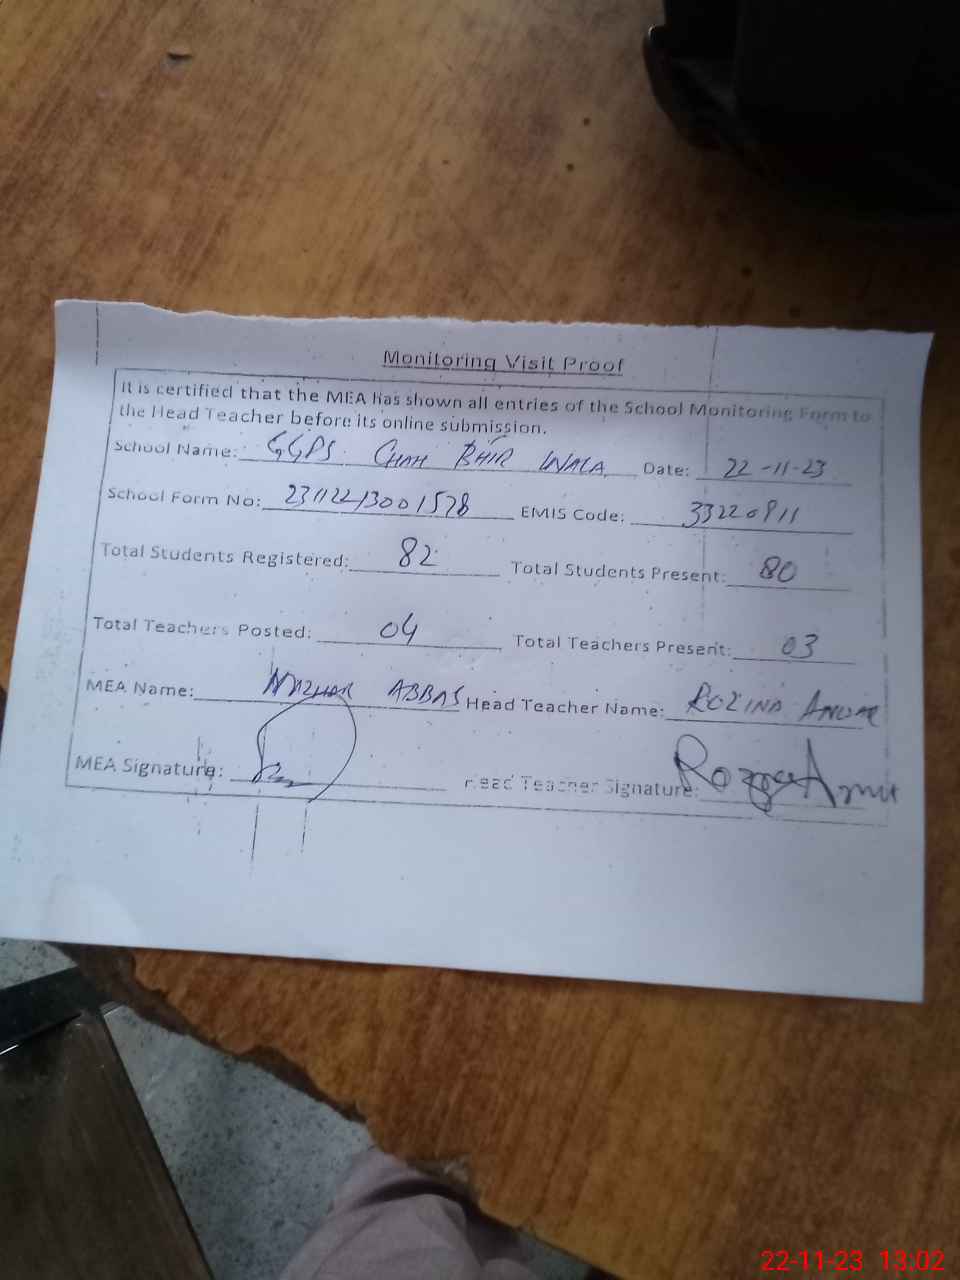 Monitoring Visit Proof
It is certified that the MEA has shown all entries of the School Monitoring Form to
the Head Teacher before its online submission.
School Name: GGPS CHAH BHIR WALA Date: 22-11-23
School Form No: 23112213001578 EMIS Code: 33220811
Total Students Registered: 82 Total Students Present: 80
Total Teachers Posted: 04 Total Teachers Present: 03
MEA Name: MAZHAR ABBAS Head Teacher Name: ROZINA ANWAR
MEA Signature: Head Teacher Signature:
22-11-23 13:02